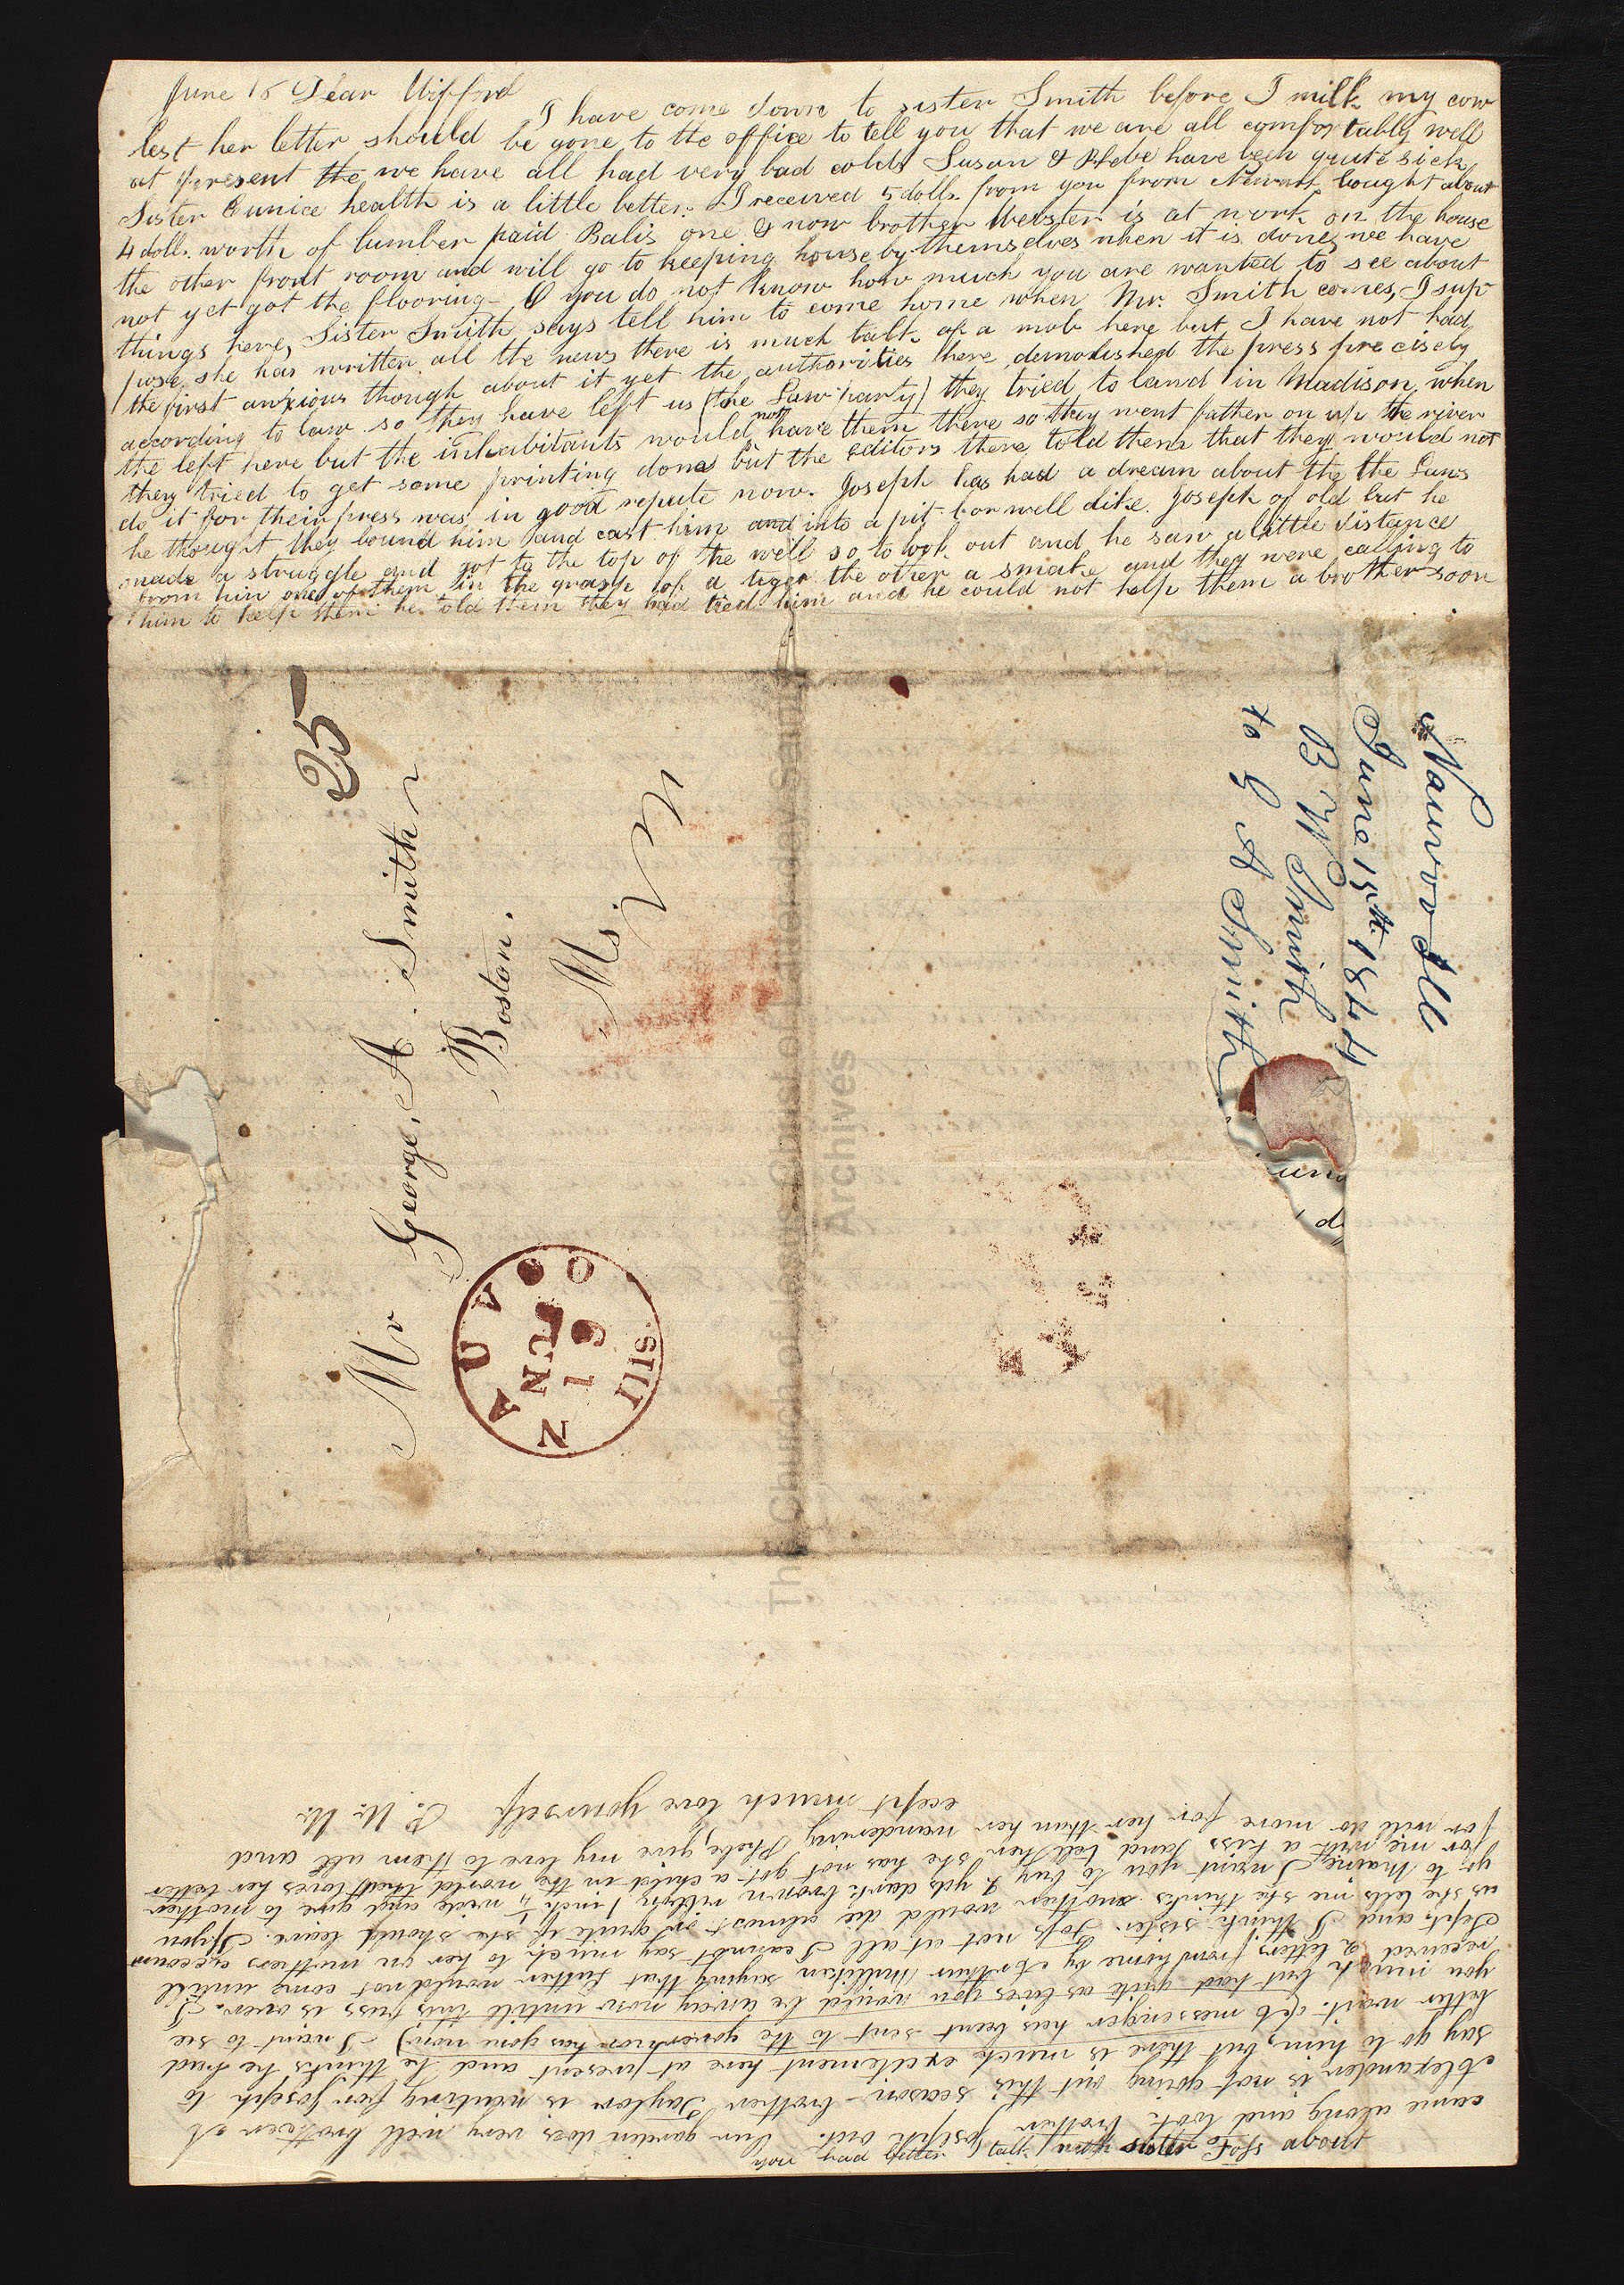 June 15 Dear Wifford
I have come down to sister Smith before I milk my cow
lest her letter should be gone to the office to tell you that we are all comfortably well
at present the we have all had very bad colds Susan & Phebe have been quite sick,
Sister Eunice health is a little better. I received 5 dolls. from you from Newark bought about
4 doll. worth of lumber paid Balis one & now brother Webster is at work on the house
the other front room and will go to keeping house by themselves when it is done, we have
not yet got the flooring - O you do not know how much you are wanted to see about
things here, Sister Smith says tell him to come home when Mr. Smith comes, I sup
pose she has written all the news there is much talk of a mob here but I have not had
the first anxious though about it yet the authorities here demolished the press precisely
according to law so they have left us (the Law party) they tried to land in Madison when
the left here but the inhabitants would not have them there so they went father on up the river
they tried to get some printing done but the editors there told them that they would not
do it for their press was in good repute now. Joseph has had a dream about the the Laws
he thought they bound him and cast him and into a pit or well like Joseph of old but he
made a struggle and got to the top of the well so to look out and he saw a little distance
from him one of them in the grasp of a tiger the other a snake and they were calling to
him to help them he told them they had tied him and he could not help them a brother soon
25
Mr George. A. Smith
Boston.
Ms
NAUVOO
JUN
16
ILLS
Nauvoo Ill
June 15th. 1844
B W Smith
to G A Smith
The Church of Jesus Christ of Latter-day Saints
Archives
came along and took brother Joseph out. Our garden does very well brother A
Alexander is not going out this season - brother Taylor is waiting for Joseph to
say go to him, but there is much excitement here at present and he thinks he had
better wait. (A messenger has been sent to the governor has gone now) I want to see
you much but had quite as lives you would be away now untill this fuss is over. I
received 2 letters from home by Arthur Milliken saying that father would not come untill
Sept. and I think sister Fofs not at all I cannot say much to her on mothers account
as she tells me she thinks mother would die almost or quite if she should leave. If you
go to Maine I want you to buy 2 yds dark brown ribbon 1 inch 1/4 wide and give to mother
for me with a kiss and tell her she has not got a child in the world that loves her better
for will do more for her than her wandering Phebe, give my love to them all and
ccept much love yourself P. W. W.